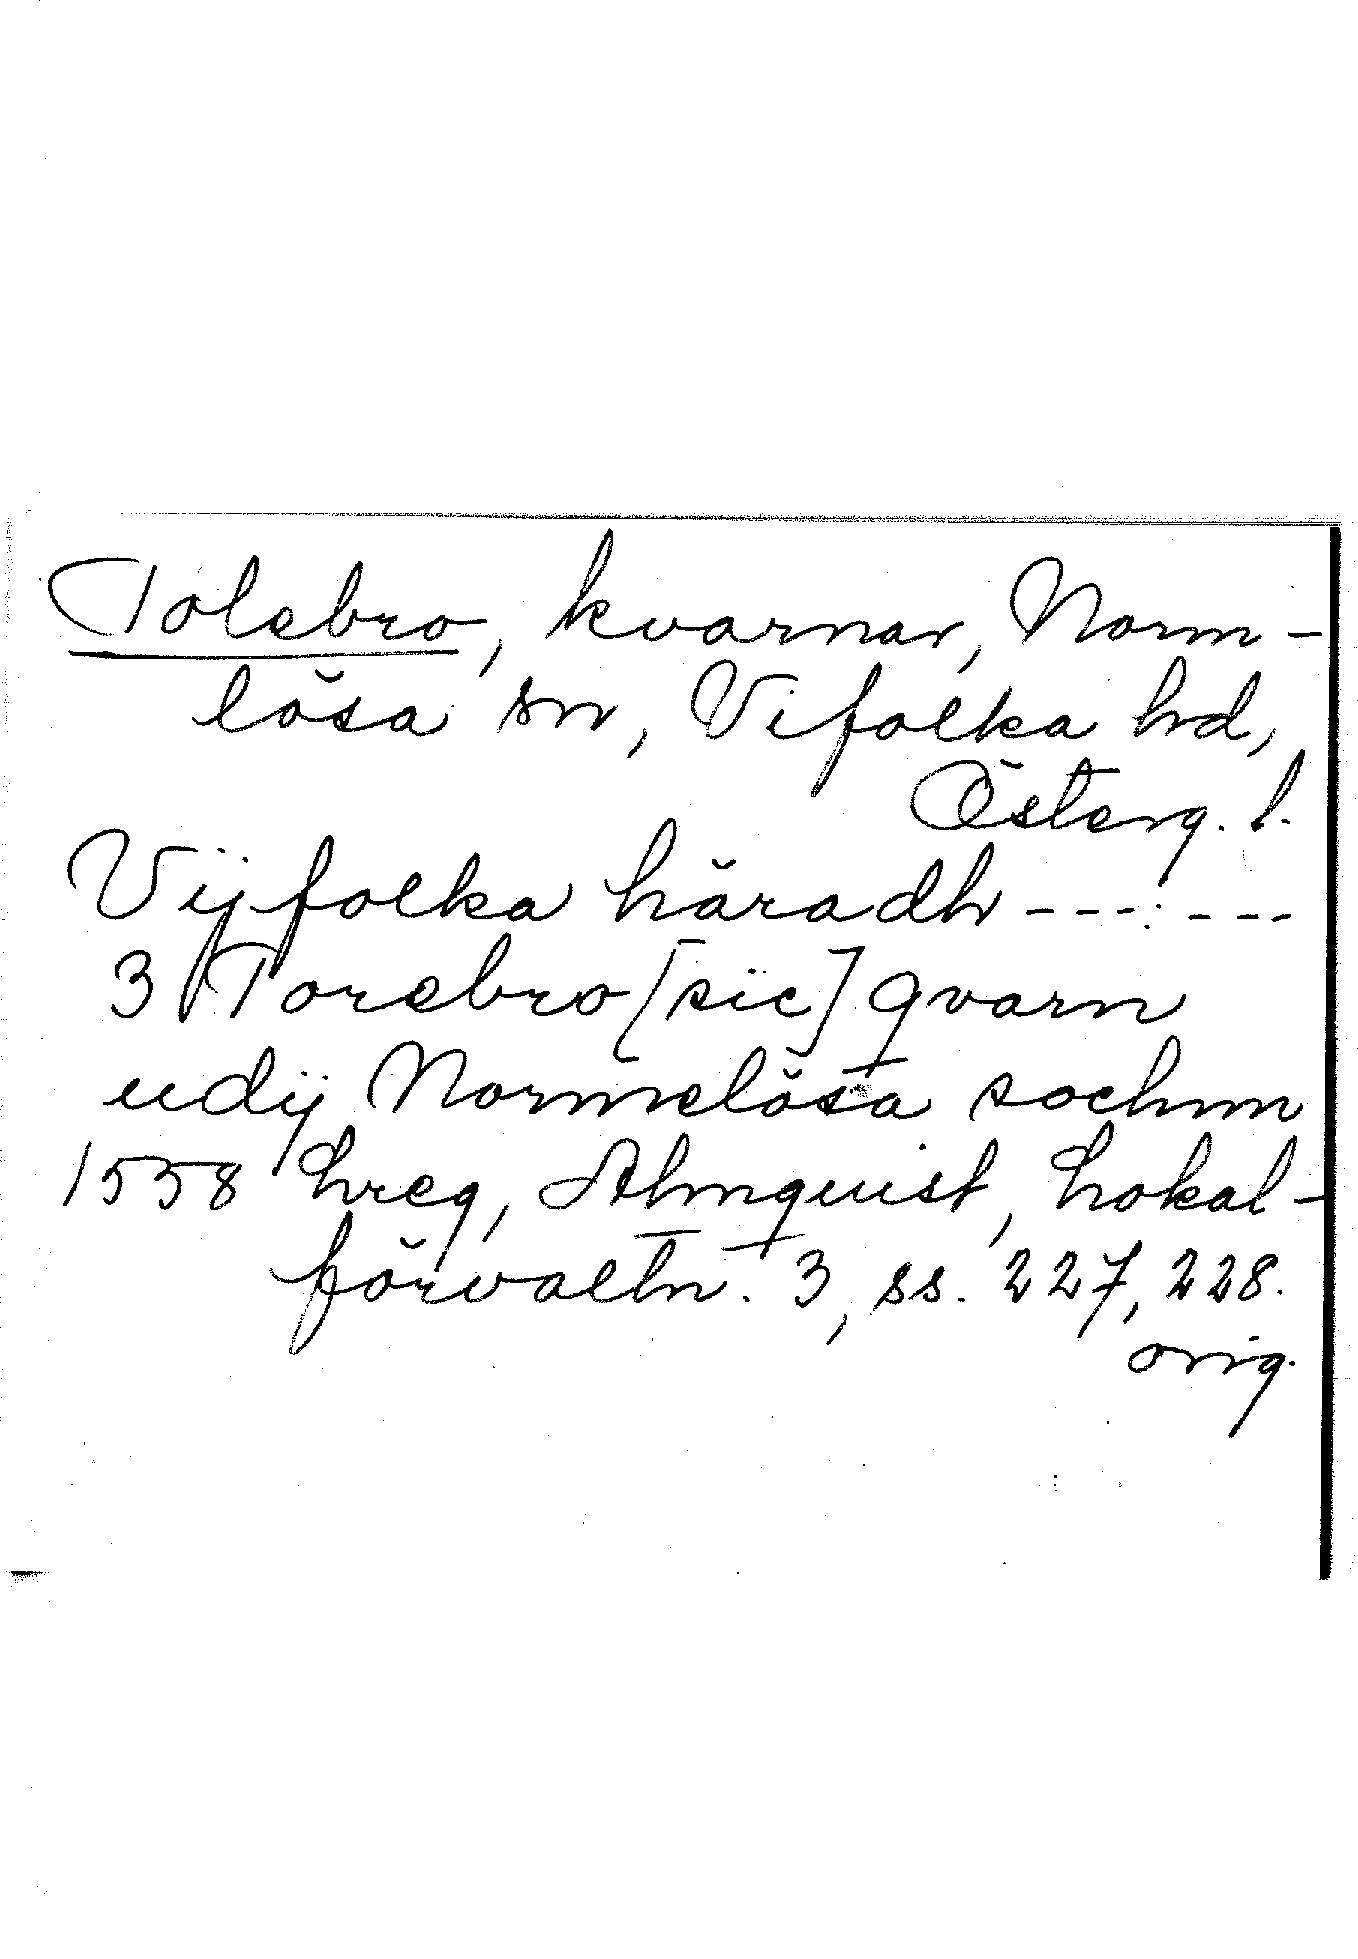 Tolebro, kvarnar, Norm-
lösa sn, Vifolka hd,
Österg. l.
Vijfolka häradh --- ---
3 Torebro [sic] qvarn
udij Normelösa sochnn
1558 hreg, Almquist, Lokal-
förvaltn. 3, ss. 227, 228.
orig.